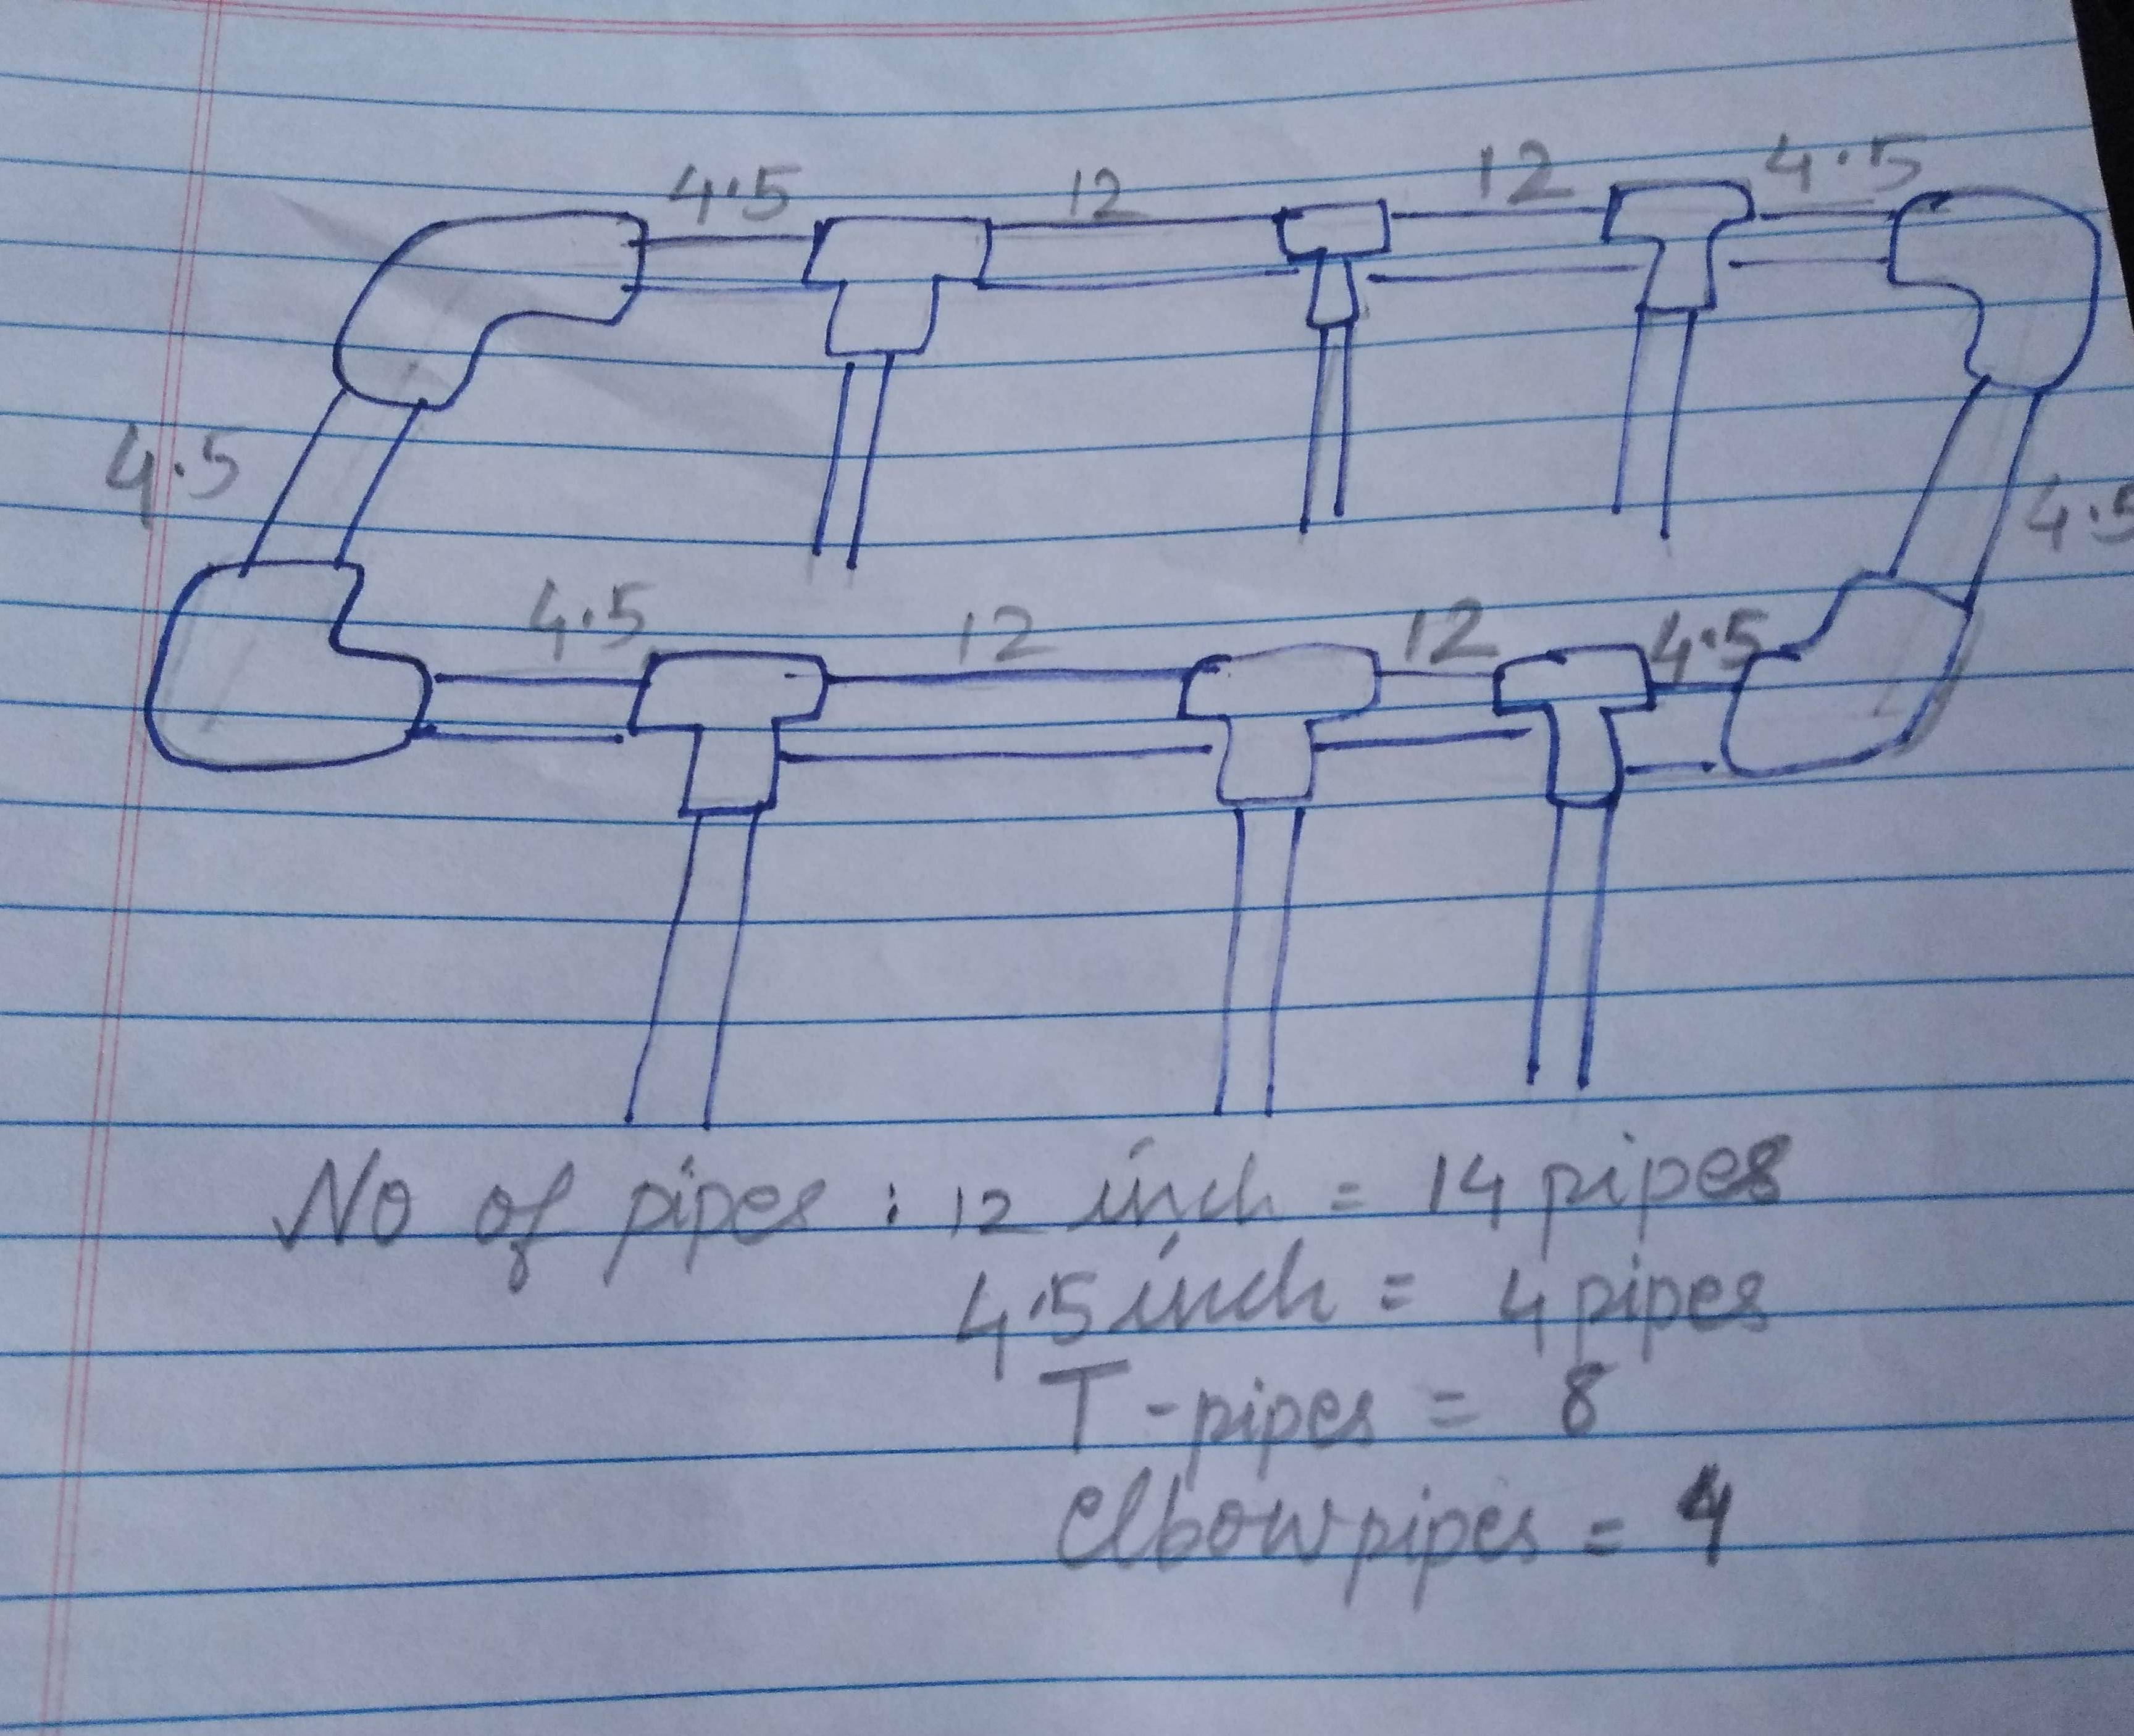 4.5 12 12 4.5
4.5 4.5
4.5 12 12 4.5
No of pipes : 12 inch = 14 pipes
4.5 inch = 4 pipes
T-pipes = 8
Elbow pipes = 4